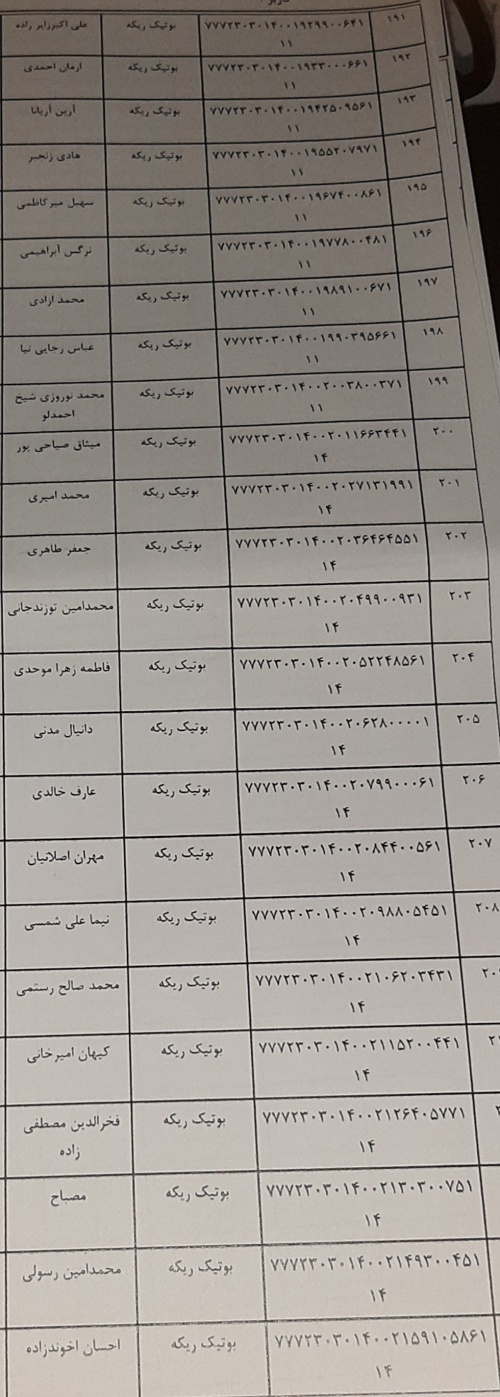 ۱۹۱ ۷۷۷۲۳۰۳۰۱۴۰۰۱۹۲۹۹۰۰۶۴۱ بوتیک ریکه علی اکبرزایر زاده
۱۱
۱۹۲ ۷۷۷۲۳۰۳۰۱۴۰۰۱۹۳۳۰۰۰۶۶۱ بوتیک ریکه ارمان احمدی
۱۱
۱۹۳ ۷۷۷۲۳۰۳۰۱۴۰۰۱۹۴۲۵۰۹۵۶۱ بوتیک ریکه آرین آریانا
۱۱
۱۹۴ ۷۷۷۲۳۰۳۰۱۴۰۰۱۹۵۵۲۰۷۹۷۱ بوتیک ریکه هادی زنجبر
۱۱
۱۹۵ ۷۷۷۲۳۰۳۰۱۴۰۰۱۹۶۷۴۰۰۸۶۱ بوتیک ریکه سهیل میرکاظمی
۱۱
۱۹۶ ۷۷۷۲۳۰۳۰۱۴۰۰۱۹۷۷۸۰۰۴۸۱ بوتیک ریکه نرگس ابراهیمی
۱۱
۱۹۷ ۷۷۷۲۳۰۳۰۱۴۰۰۱۹۸۹۱۰۰۶۷۱ بوتیک ریکه محمد ازادی
۱۱
۱۹۸ ۷۷۷۲۳۰۳۰۱۴۰۰۱۹۹۰۳۹۵۶۶۱ بوتیک ریکه عباس رجایی نیا
۱۱
۱۹۹ ۷۷۷۲۳۰۳۰۱۴۰۰۲۰۰۳۸۰۰۳۷۱ بوتیک ریکه محمد نوروزی شیخ
۱۱ احمدلو
۲۰۰ ۷۷۷۲۳۰۳۰۱۴۰۰۲۰۱۱۶۶۳۴۴۱ بوتیک ریکه میثاق صیاحی پور
۱۴
۲۰۱ ۷۷۷۲۳۰۳۰۱۴۰۰۲۰۲۷۱۳۱۹۹۱ بوتیک ریکه محمد امیری
۱۴
۲۰۲ ۷۷۷۲۳۰۳۰۱۴۰۰۲۰۳۶۴۶۴۵۵۱ بوتیک ریکه جعفر طاهری
۱۴
۲۰۳ ۷۷۷۲۳۰۳۰۱۴۰۰۲۰۴۹۹۰۰۹۳۱ بوتیک ریکه محمدامین توزندجانی
۱۴
۲۰۴ ۷۷۷۲۳۰۳۰۱۴۰۰۲۰۵۲۲۴۸۵۶۱ بوتیک ریکه فاطمه زهرا موحدی
۱۴
۲۰۵ ۷۷۷۲۳۰۳۰۱۴۰۰۲۰۶۲۸۰۰۰۰۱ بوتیک ریکه دانیال مدنی
۱۴
۲۰۶ ۷۷۷۲۳۰۳۰۱۴۰۰۲۰۷۹۹۰۰۰۶۱ بوتیک ریکه عارف خالدی
۱۴
۲۰۷ ۷۷۷۲۳۰۳۰۱۴۰۰۲۰۸۴۴۰۰۵۶۱ بوتیک ریکه مهران اصلانیان
۱۴
۲۰۸ ۷۷۷۲۳۰۳۰۱۴۰۰۲۰۹۸۸۰۵۴۵۱ بوتیک ریکه نیما علی شمسی
۱۴
۷۷۷۲۳۰۳۰۱۴۰۰۲۱۰۶۲۰۳۴۳۱ بوتیک ریکه محمد صالح رستمی
۱۴
۷۷۷۲۳۰۳۰۱۴۰۰۲۱۱۵۲۰۰۴۴۱ بوتیک ریکه کیهان امیرخانی
۱۴
۷۷۷۲۳۰۳۰۱۴۰۰۲۱۲۶۴۰۵۷۷۱ بوتیک ریکه فخرالدین مصطفی
۱۴ زاده
۷۷۷۲۳۰۳۰۱۴۰۰۲۱۳۰۳۰۰۷۵۱ بوتیک ریکه مصباح
۱۴
۷۷۷۲۳۰۳۰۱۴۰۰۲۱۴۹۳۰۰۴۵۱ بوتیک ریکه محمدامین رسولی
۱۴
۷۷۷۲۳۰۳۰۱۴۰۰۲۱۵۹۱۰۵۸۶۱ بوتیک ریکه احسان اخوندزاده
۱۴